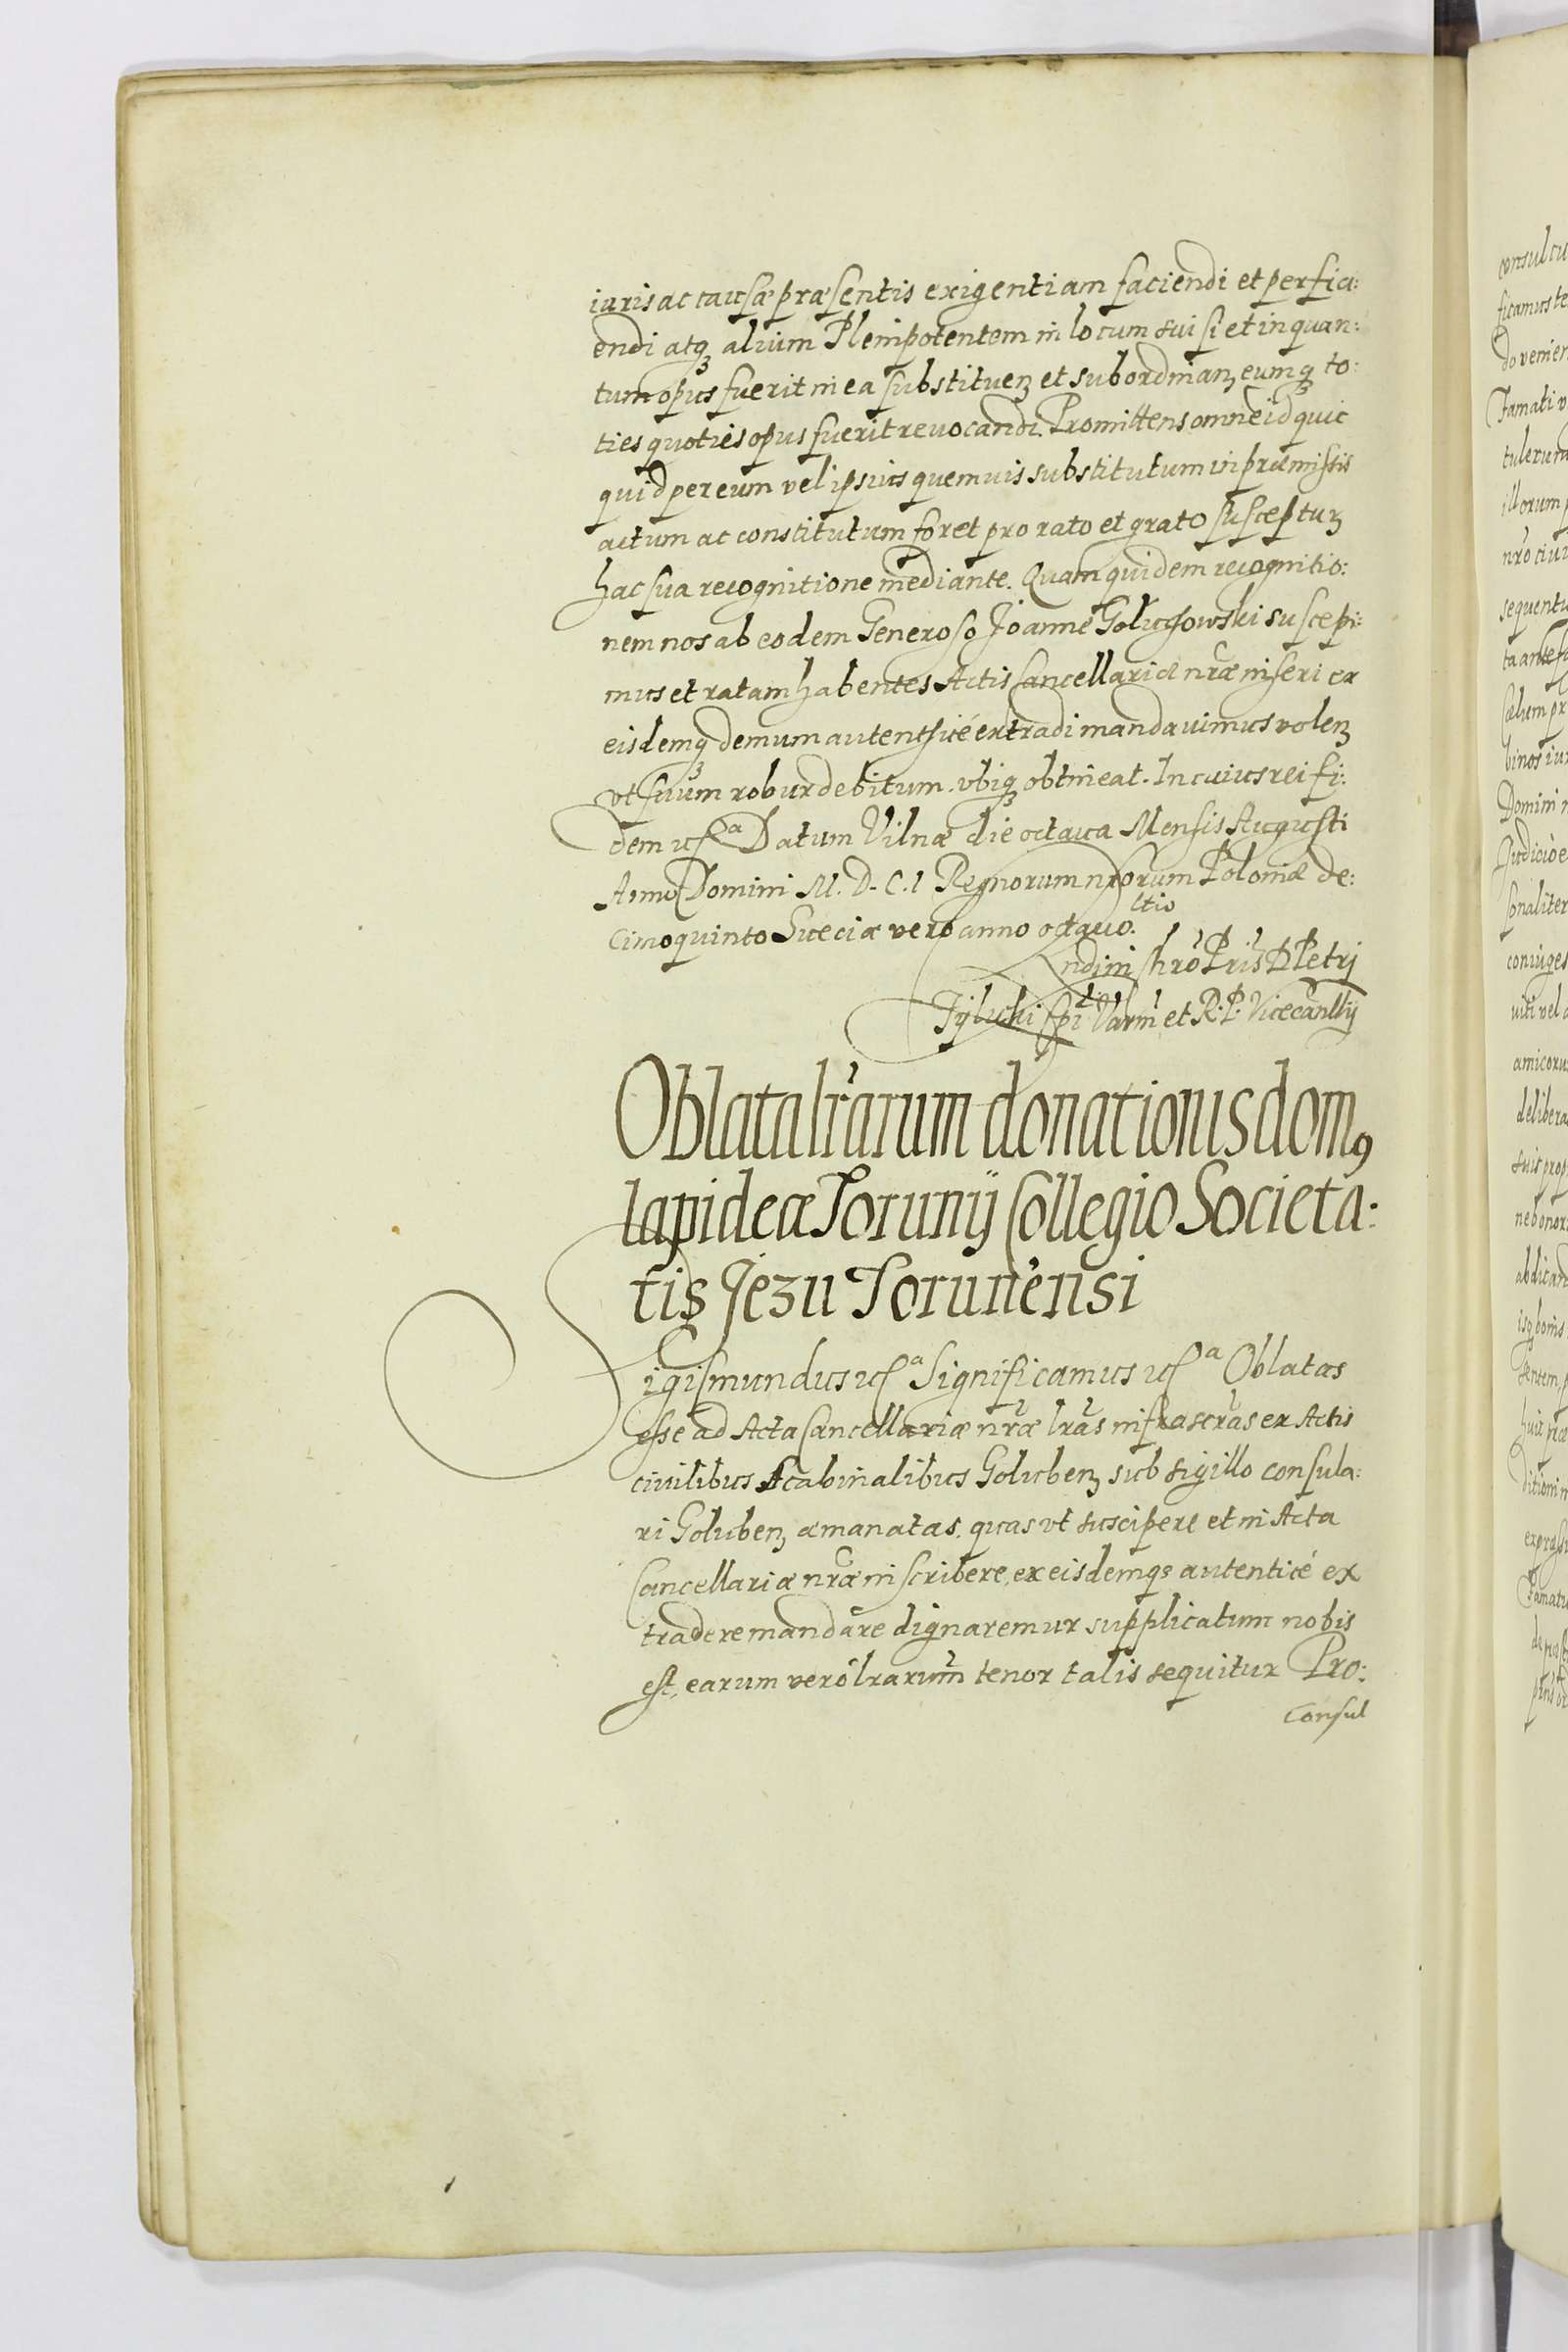 iuris ac causæ præsentis exigentiam faciendi et perfici:
endi atq3 alium Plenipotentem in locum sui si et inquan:
tum opus fuerit in ea substituen3 et subordinan3 eumq3 to:
ties quoties opus fuerit reuocandi. Promittens omne id quic
quid per eum vel ipsius quemuis substitutum in præmissis
actum ac constitutum foret pro rato et grato susceptur3
hac sua recognitione mediante. Quam quidem recognitio:
nem nos ab eodem Generoso Joanne Goluchowski suscepi:
mus et ratam habentes Actis Cancellariæ nr̃æ inseri ex
eisdemq3 demum autenthicé extradi mandauimus volen3
vt suum robur debitum vbiq3 obtineat. In cuius rei fi:
dem ucſª Datum Vilnæ die octaua Mensis Augusti
Anno Domini M. D. C. I Regnorum nr̃orum Poloniæ de:
cimoquinto Sueciæ vero anno octauo.
Tylicki Epĩ Varm̃ et R. P. Vicecanllij
Oblata lr̃arum donationis domꝯ
lapideæ Torunij Collegio Societa:
tis Jezu Torunensi
Sigismundus ucſª Significamus ucſª Oblatas
esse ad Acta Cancellariæ nr̃æ lr̃as infrascr̃as ex Actis
ciuilibus Scabinalibus Goluben3 sub sigillo consula:
ri Goluben3 æmanatas. quas vt suscipere et in Acta
Cancellariæ nr̃æ inscribere, ex eisdemq3 autenticé ex
tradere mandare dignaremur supplicatum nobis
est, earum verò lr̃arum tenor talis sequitur Pro:
Consul